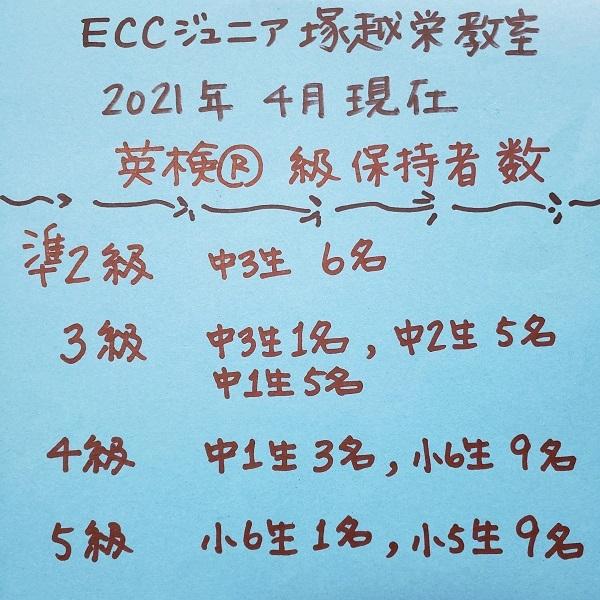 ECCジュニア塚越栄教室
2021年 4月現在
英検® 級保持者数
準2級 中3生 6名
3級 中3生1名, 中2生5名
中1生5名
4級 中1生3名, 小6生9名
5級 小6生1名, 小5生9名